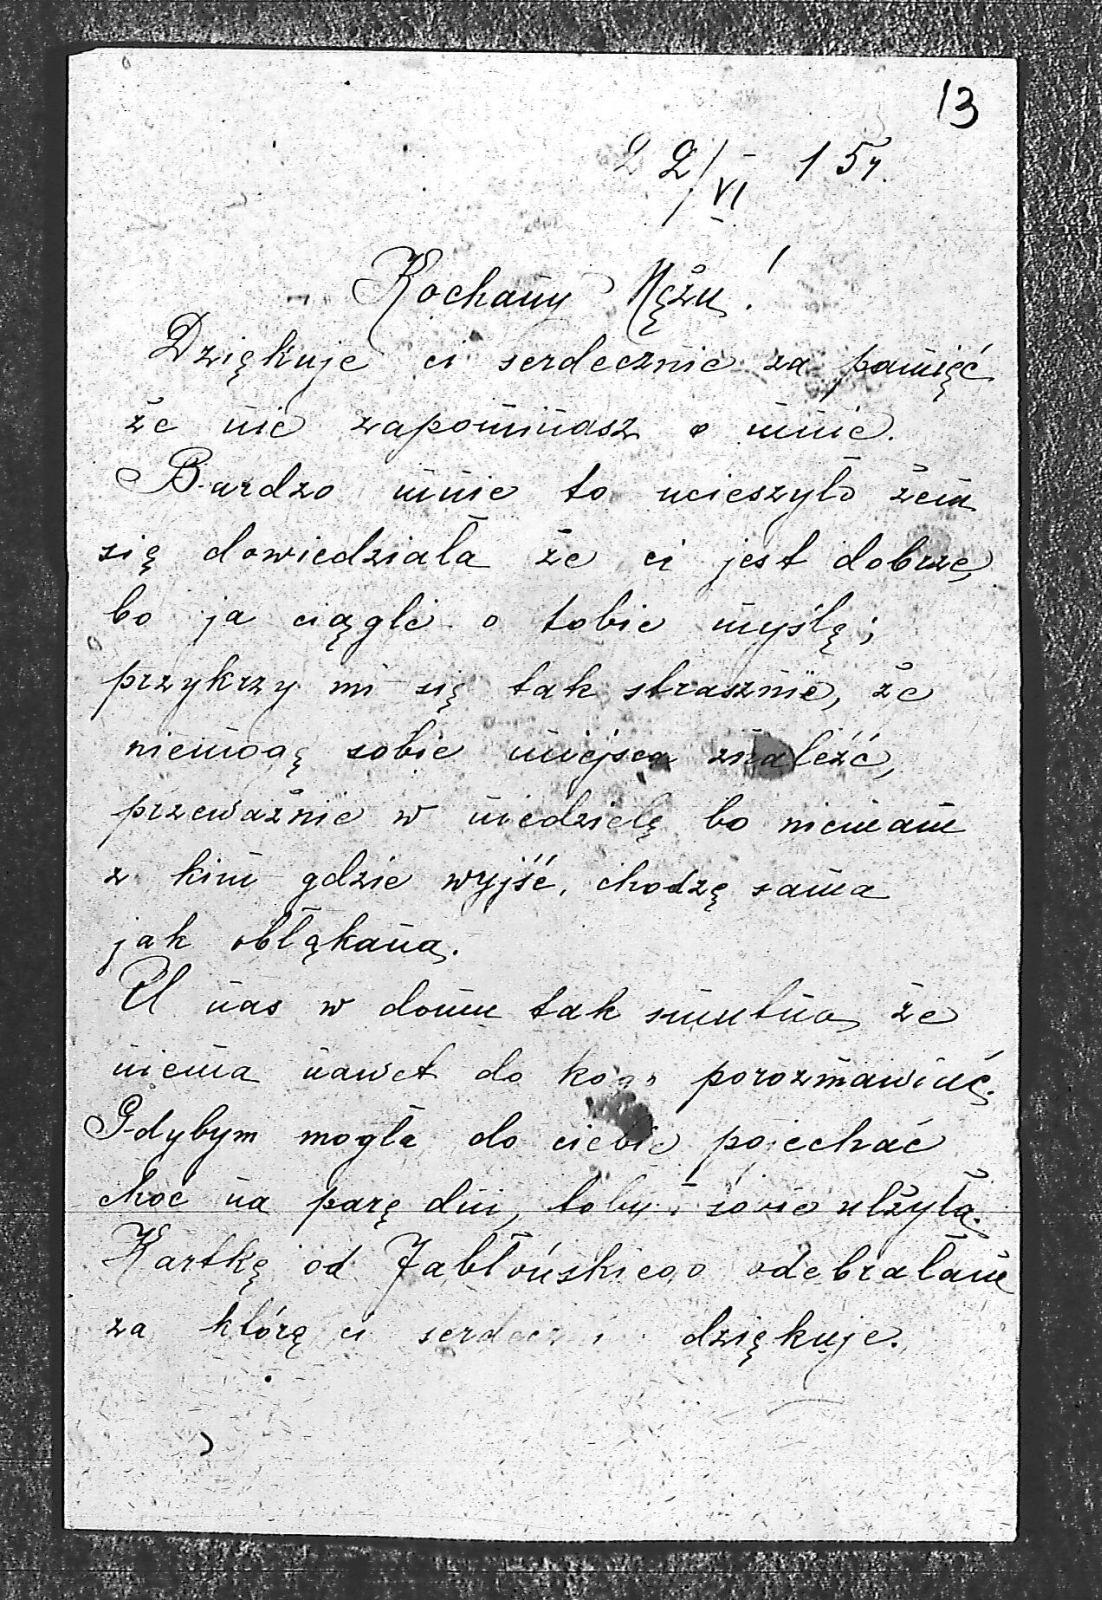 13
22/VI 15 r.
Kochany Mężu!
Dziękuje ci serdecznie za pamięć
że nie zapominasz o mnie.
Bardzo mnie to ucieszyło żem
się dowiedziała że ci jest dobrze,
bo ja ciągle o tobie myślę;
przykrzy mi się tak strasznie, że
niemogę sobie miejsca znaleźć,
przeważnie w niedzielę bo niemam
z kim gdzie wyjść, chodzę sama
jak obłąkana.
U nas w domu tak smutno że
niema nawet do kogo porozmawiać.
Gdybym mogła do ciebie pojechać
choć na parę dni, tobym sobie ulżyła.
Kartkę od Jabłońskiego odebrałam
za którą ci dziękuje.